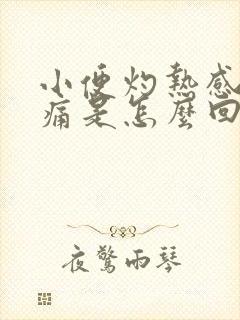 小便灼熱感
痛是怎麼回
夜驚雨琴